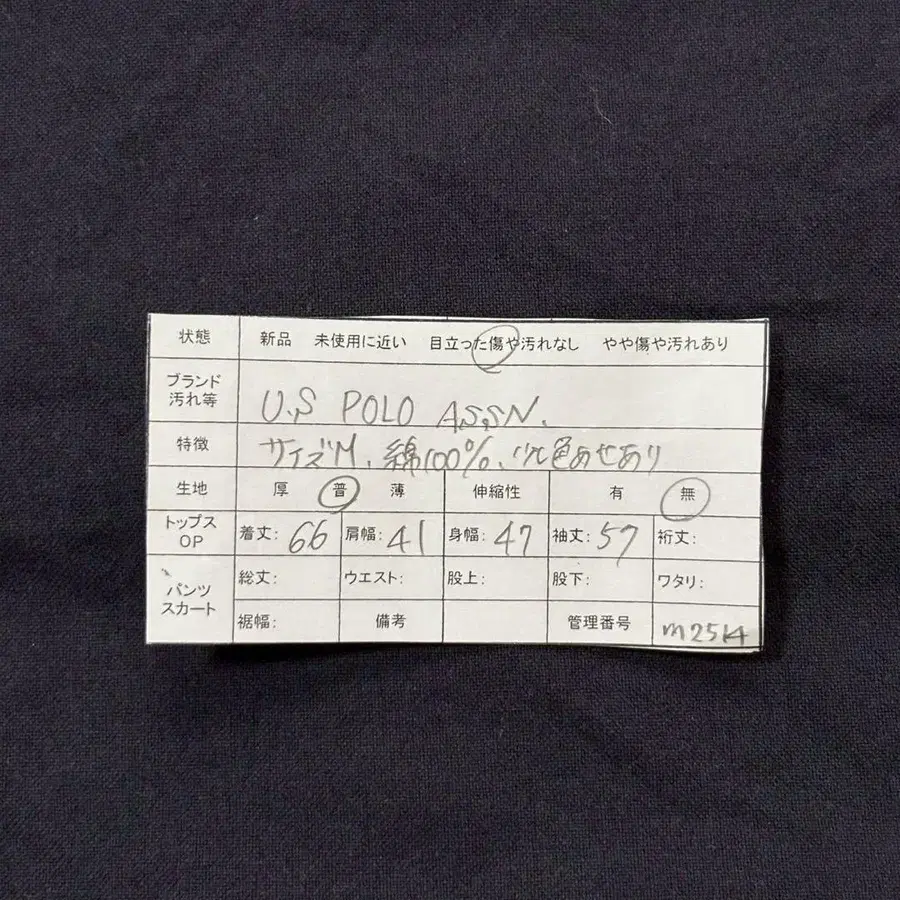 状態 新品 未使用に近い 目立った傷や汚れなし やや傷や汚れあり
ブランド
汚れ等 U.S POLO ASSN.
特徴 サイズM、綿100%、少色あせあり
生地 厚 普 薄 伸縮性 有 無
トップス
OP 着丈: 66 肩幅: 41 身幅: 47 袖丈: 57 裄丈:
パンツ
スカート 総丈: ウエスト: 股上: 股下: ワタリ:
裾幅: 備考 管理番号 m2514